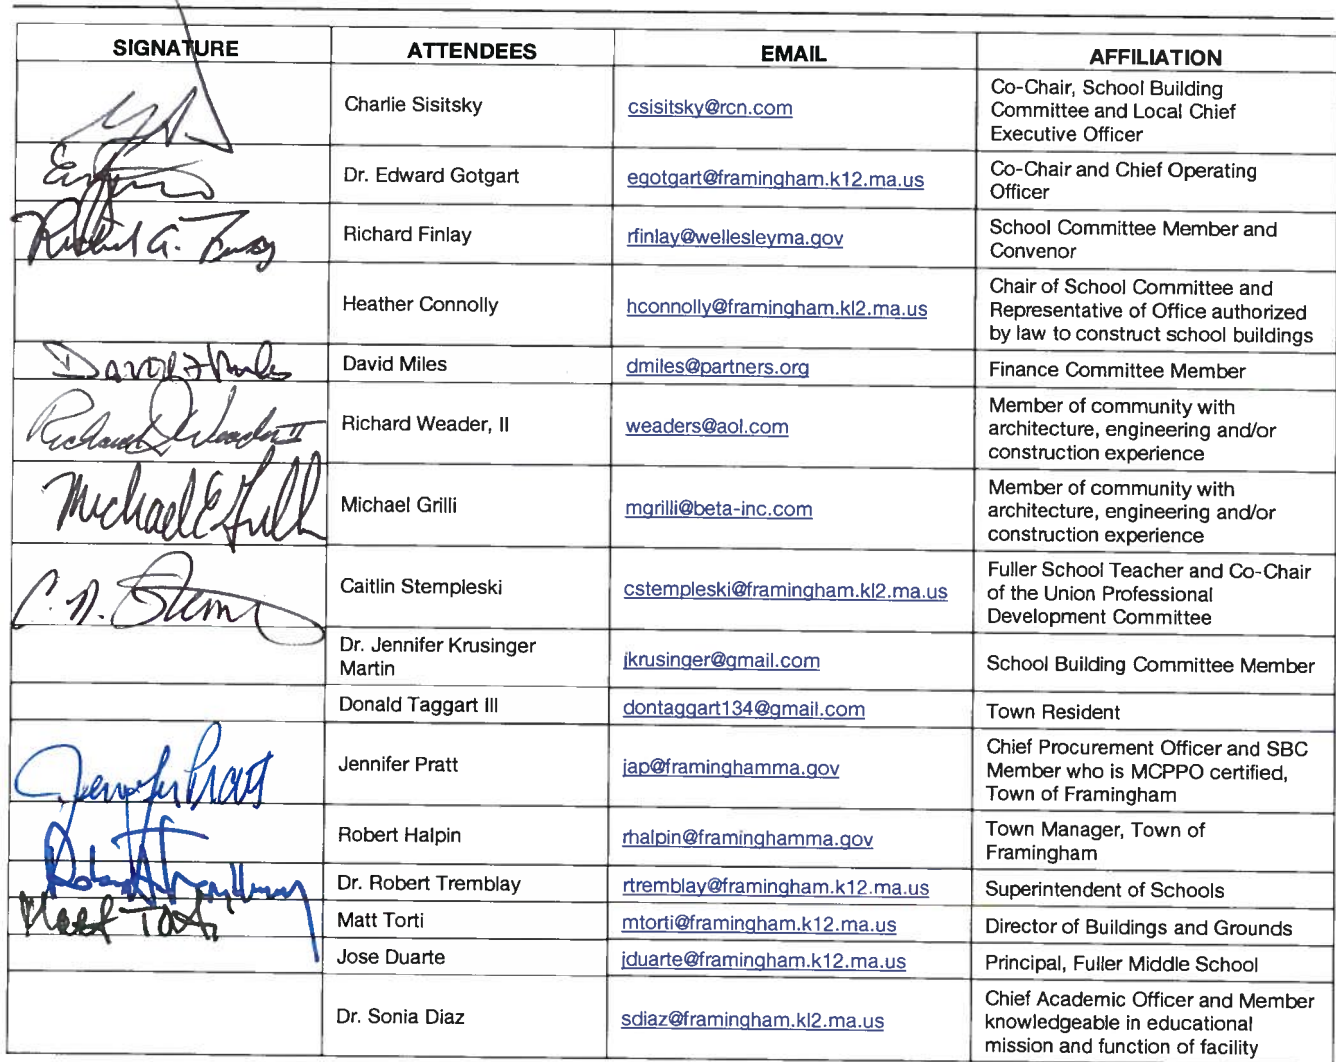 SIGNATURE ATTENDEES EMAIL AFFILIATION
Charlie Sisitsky csisitsky@rcn.com Co-Chair, School Building
Committee and Local Chief
Executive Officer
Dr. Edward Gotgart egotgart@framingham.k12.ma.us Co-Chair and Chief Operating
Officer
Richard Finlay rfinlay@wellesleyma.gov School Committee Member and
Convenor
Heather Connolly hconnolly@framingham.kl2.ma.us Chair of School Committee and
Representative of Office authorized
by law to construct school buildings
David Miles dmiles@partners.org Finance Committee Member
Richard Weader, II weaders@aol.com Member of community with
architecture, engineering and/or
construction experience
Michael E Grilli
Michael Grilli mgrilli@beta-inc.com Member of community with
architecture, engineering and/or
construction experience
C. N. Stem
Caitlin Stempleski cstempleski@framingham.kl2.ma.us Fuller School Teacher and Co-Chair
of the Union Professional
Development Committee
Dr. Jennifer Krusinger
Martin jkrusinger@gmail.com School Building Committee Member
Donald Taggart III dontaggart134@gmail.com Town Resident
Jennifer Pratt
Jennifer Pratt jap@framinghamma.gov Chief Procurement Officer and SBC
Member who is MCPPO certified,
Town of Framingham
Robert Halpin rhalpin@framinghamma.gov Town Manager, Town of
Framingham
Dr. Robert Tremblay rtremblay@framingham.k12.ma.us Superintendent of Schools
Matt Torti
Matt Torti mtorti@framingham.k12.ma.us Director of Buildings and Grounds
Jose Duarte jduarte@framingham.k12.ma.us Principal, Fuller Middle School
Dr. Sonia Diaz sdiaz@framingham.kl2.ma.us Chief Academic Officer and Member
knowledgeable in educational
mission and function of facility